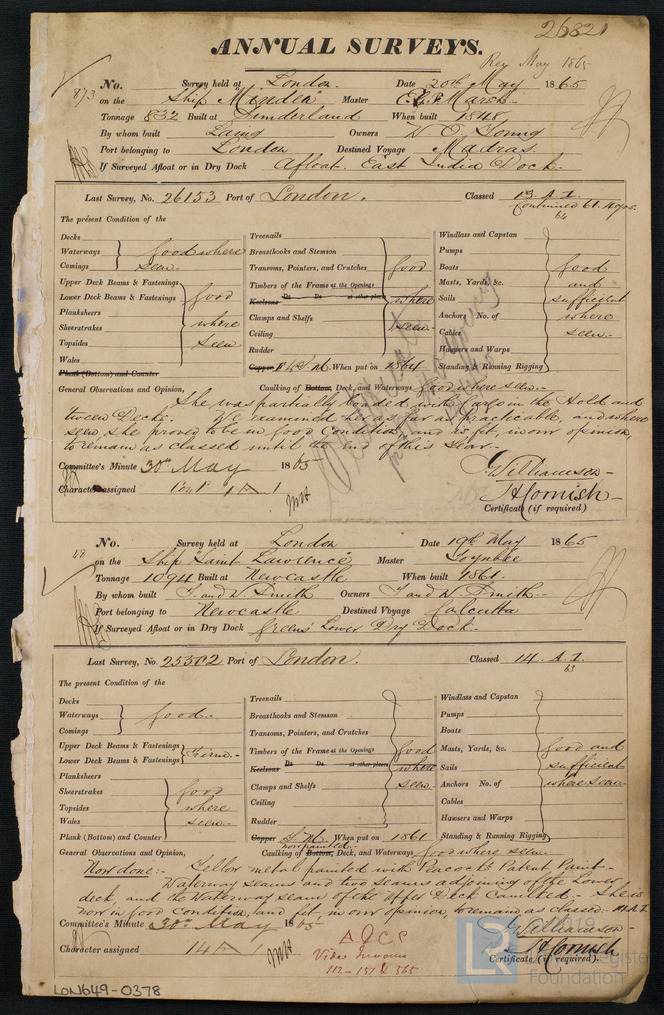 26821
ANNUAL SURVEYS.
Rec May 1865
873
No. Survey held at London. Date 20th May 1865
on the Ship Mindia Master Marsh
Tonnage 832 Built at Sunderland When built 1848
By whom built Laing Owners W O Young
Port belonging to London Destined Voyage Madras.
If Surveyed Afloat or in Dry Dock Afloat. East India Dock.
Last Survey, No. 26153 Port of London. Classed 13. A. 1.
Continued 61. 64
The present Condition of the
Decks
Waterways
Comings
good where seen.
Upper Deck Beams & Fastenings
Lower Deck Beams & Fastenings
Planksheers
Sheerstrakes
Topsides
Wales
good where seen
Plank (Bottom) and Counter
Treenails
Breasthooks and Stemson
Transoms, Pointers, and Crutches
Timbers of the Frame at the Openings
Keelsons Do Do at other places
Clamps and Shelfs
Ceiling
Rudder
good where seen.
Copper Y M When put on 1864
Windlass and Capstan
Pumps
Boats
Masts, Yards, &c.
Sails
Anchors No. of
Cables
Hawsers and Warps
Standing & Running Rigging
good and sufficient where seen.
General Observations and Opinion, Caulking of Bottom, Deck, and Waterways good where seen.
She was partially loaded, with Cargo in the Hold and
tween Decks. We examined her as far as practicable, and where
seen she proved to be in good Condition, and is fit, in our opinion,
to remain as classed until the end of this Year.
Committee's Minute 30th May 1865
Character assigned Cont A 1
G Williamson
J H Cornish
Certificate (if required)
48
No. Survey held at London Date 19th May 1865
on the Ship "Saint Lawrence" Master Toynbee
Tonnage 1094 Built at Newcastle When built 1861.
By whom built T. and W. Smith Owners T and W Smith
Port belonging to Newcastle Destined Voyage Calcutta
If Surveyed Afloat or in Dry Dock Greens' Lower Dry Dock.
Last Survey, No. 25502 Port of London. Classed 14. A. 1.
63
The present Condition of the
Decks
Waterways
Comings
good.
Upper Deck Beams & Fastenings
Lower Deck Beams & Fastenings
Firm.
Planksheers
Sheerstrakes
Topsides
Wales
Plank (Bottom) and Counter
good where seen.
Treenails
Breasthooks and Stemson
Transoms, Pointers, and Crutches
Timbers of the Frame at the Openings
Keelsons Do. Do. at other places
Clamps and Shelfs
Ceiling
Rudder
good where seen
Copper Y. M. When put on 1861
now painted
Windlass and Capstan
Pumps
Boats
Masts, Yards, &c.
Sails
Anchors No. of
Cables
Hawsers and Warps
Standing & Running Rigging
good and sufficient where seen
General Observations and Opinion, Caulking of Bottom, Deck, and Waterways good where seen.
Now done:- Yellow metal painted with Peacock's Patent Paint.
Waterway seams and two seams adjoining of the Lower
deck, and the Waterway seams of the Upper Deck Caulked. She is
now in good Condition, and fit, in our opinion, to remain as classed.
Committee's Minute 30th May 1865
Character assigned 14 A 1
G Williamson
J H Cornish
Certificate (if required).
A & C P
Vide
112-151 & 365
LON649-0378
LR
©2019
Lloyd's Register
Foundation